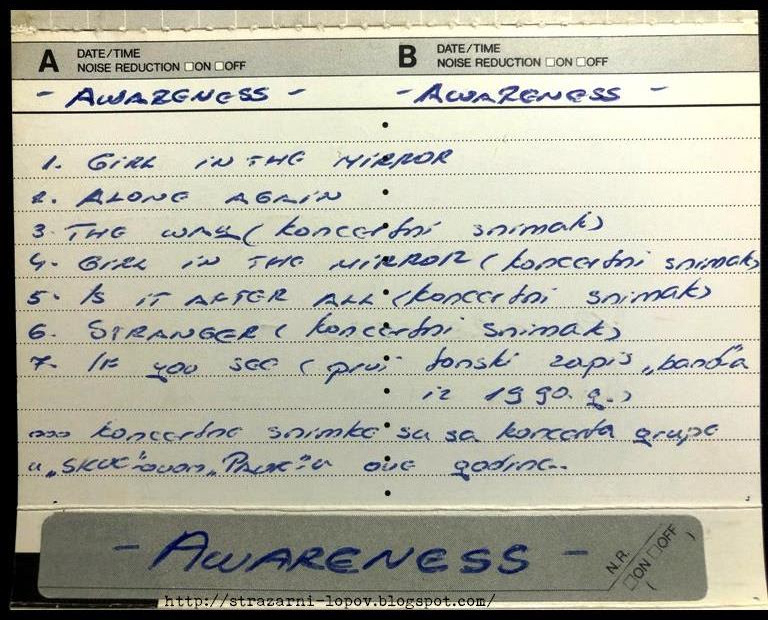 A DATE/TIME
NOISE REDUCTION □ON □OFF
B DATE/TIME
NOISE REDUCTION □ON □OFF
- AWARENESS -
- AWARENESS -
1. GIRL IN THE MIRROR
2. ALONE AGAIN
3 THE WAY (koncertni snimak)
4. GIRL IN THE MIRROR (koncertni snimak)
5. IS IT AFTER ALL (koncertni snimak)
6. STRANGER (koncertni snimak)
7. IF you SEE (prvi tonski zapis „band“a
iz 1990.g.)
koncertne snimke su sa koncerta grupe
u „SKUC“-ovom „PAUK“-u ove godine..
- AWARENESS -
N.R.
□ON □OFF
http://strazarni-lopov.blogspot.com/